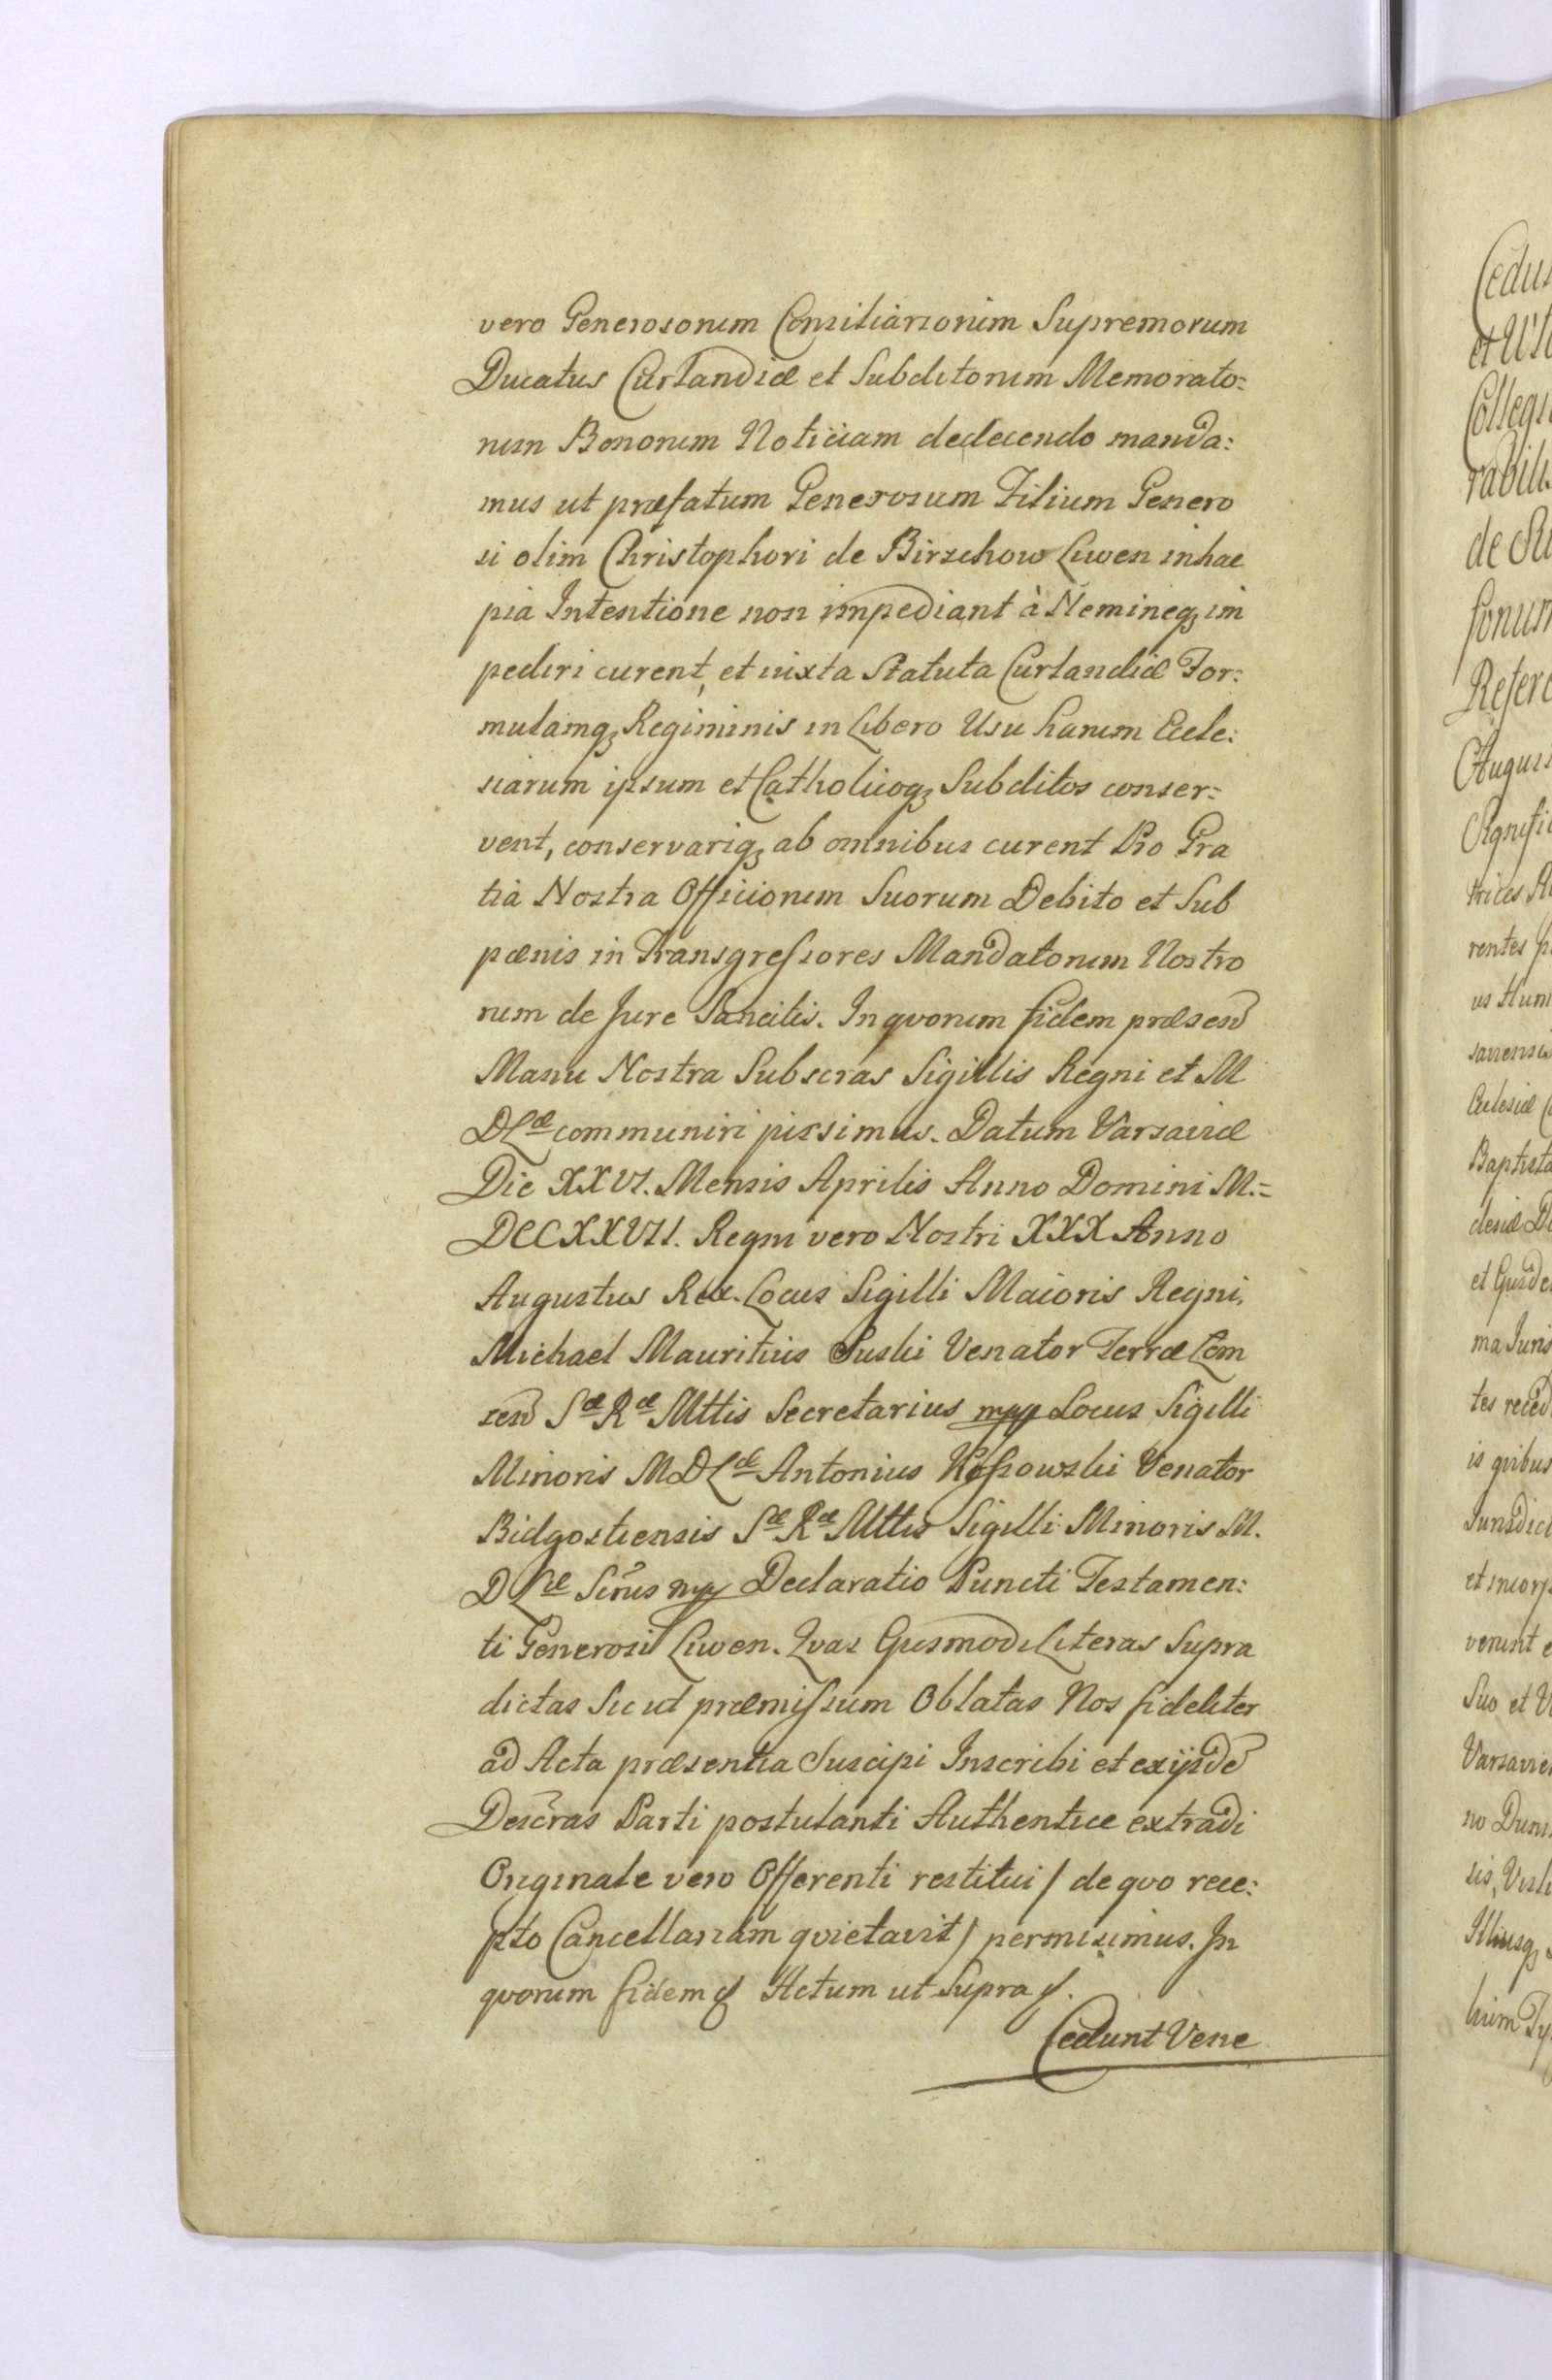 vero Generosorum Consiliariorum Supremorum
Ducatus Curlandiæ et Subditorum Memorato:
rum Bonorum Noticiam deducendo manda:
mus ut præfatum Generosum Filium Genero
si olim Christophori de Birzchow Liwen in hac
pia Intentione non impediant à Nemineq; im
pediri curent, et iuxta Statuta Curlandiæ For:
mulamq; Regiminis in Libero Usu harum Eccle:
siarum ipsum et Catholicoq; Subditos conser:
vent, conservariq; ab omnibus curent Pro Gra
tia Nostra Officiorum Suorum Debito et Sub
pænis in Transgressores Mandatorum Nostro
rum de Jure Sancitis. In qvorum fidem præsen̄
Manu Nostra Subscras Sigillis Regni et M
D Læ communiri jussimus. Datum Varsaviæ
Die XXVI. Mensis Aprilis Anno Domini M.=
DCCXXVII. Regni vero Nostri XXX Anno
Augustus Rex. Locus Sigilli Maioris Regni.
Michael Mauritius Suski Venator Terræ Lom
zen̄ Sæ Ræ Mttis Secretarius mpp Locus Sigilli
Minoris MDLæ Antonius Kossowski Venator
Bidgostiensis Sæ Ræ Mttis Sigilli Minoris M.
D Læ Scrius mpp Declaratio Puncti Testamen:
ti Generosi Liwen. Qvas Ejusmodi Literas Supra
dictas Sicut præmissum Oblatas Nos fideliter
ad Acta præsentia Suscipi Inscribi et ex ijsdē
Descras Parti postulanti Authentice extradi
Originale vero Offerenti restitui / de qvo rece:
pto Cancellariam qvietavit / permisimus. In
qvorum fidem & Actum ut Supra &.
Cedunt Vene
Cedu
et
Colleg
rabili
de
sonum
Refer
Augus
Signifi
trices
rentes
us Hum
Ecclesiæ
Baptista
clesiæ
et Ejusde
ma Juris
tes reced
is qvibus
Jurisdict
et incorp
verint
Suo et
Varsavie
no Dum
sis,
Illiusq;